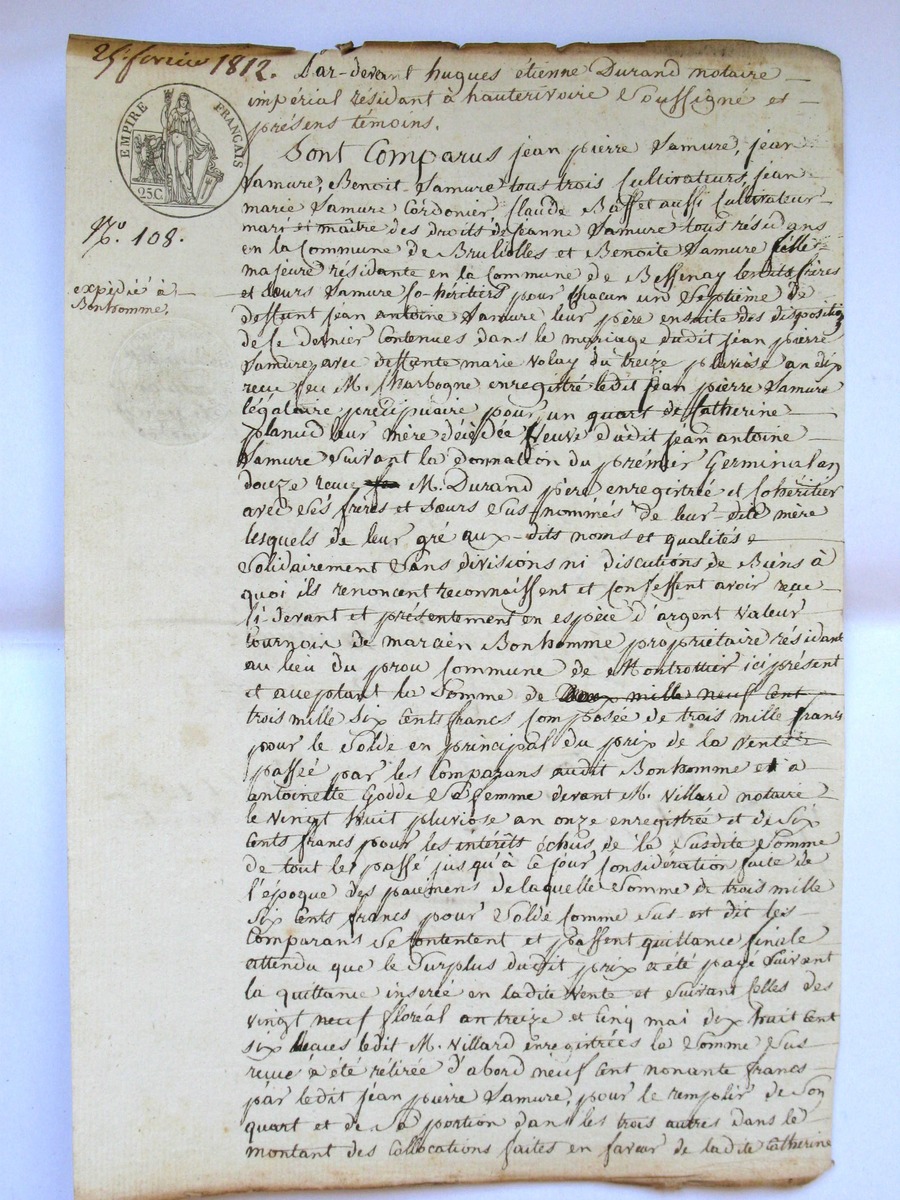 25. fevrier 1812.
Par-devant hugues étienne Durand notaire
impérial résidant à hauterivoire Soussigné et
présens témoins.
EMPIRE FRANÇAIS
25C.
N.o 108.
expédié à
Bonhomme.
Sont Comparus jean pierre Samure, jean
Samure, Benoit Samure tous trois Cultivateurs, jean
marie Samure Cordonier, Claude Baffet aussi Cultivateur
mari et maître des droits de jeanne Samure tous résidans
en la Commune de Brullolles et Benoite Samure fille
majeure résidante en la Commune de Bessenay lesdits frères
et sœurs Samure Co-héritiers pour chacun un Septième de
deffunt jean antoine Samure leur père ensuite des disposition
de ce dernier Contenues dans le mariage dudit jean pierre
Samure avec deffunte marie Volay du treize pluviose an dix
recu feu M. Charbogne enregistré ledit jean pierre Samure
légataire précipuaire pour un quart de Catherine
planud leur mère décédée Veuve dudit jean antoine
Samure Suivant la donnation du premier Germinal an
douze recue M. Durand père enregistrée et Cohéritier
avec Ses frères et Sœurs Sus-nommés de leur-dite mère
lesquels de leur gré aux-dits noms et qualités
Solidairement Sans divisions ni discutions de Biens à
quoi ils renoncent reconnaissent et Confessent avoir recu
Ci-devant et présentement en espèce d'argent Valeur
tournois de marcien Bonhomme propriétaire résidant
au lieu du prou Commune de Montrottier ici présent
et acceptant la Somme de Deux mille neuf Cent
trois mille Six Cents francs Composée de trois mille francs
pour le Solde en principal du prix de la Vente
passée par les Comparans audit Bonhomme et a
antoinette Godde Sa femme devant M. Villard notaire
le vingt huit pluviose an onze enregistrée et de Six
Cents francs pour les intérêts échus de la Susdite Somme
de tout le passé jusqu'à ce jour Considération faite de
l'époque des paiemens de laquelle Somme de trois mille
Six Cents francs pour Solde Comme Sus-est dit les
Comparans Se Contentent et passent quittance finale
attendu que le Surplus dudit prix a été payé Suivant
la quittance inserée en ladite Vente et Suivant Celles des
vingt neuf floréal an treize et Cinq mai dix huit Cent
six recues ledit M. Villard enregistrées la Somme Sus
recue a été retirée d'abord neuf Cent nonante francs
par ledit jean pierre Samure, pour le remplir de Son
quart et de Sa portion dans les trois autres dans le
montant des Collocations faites en faveur de ladite Catherine